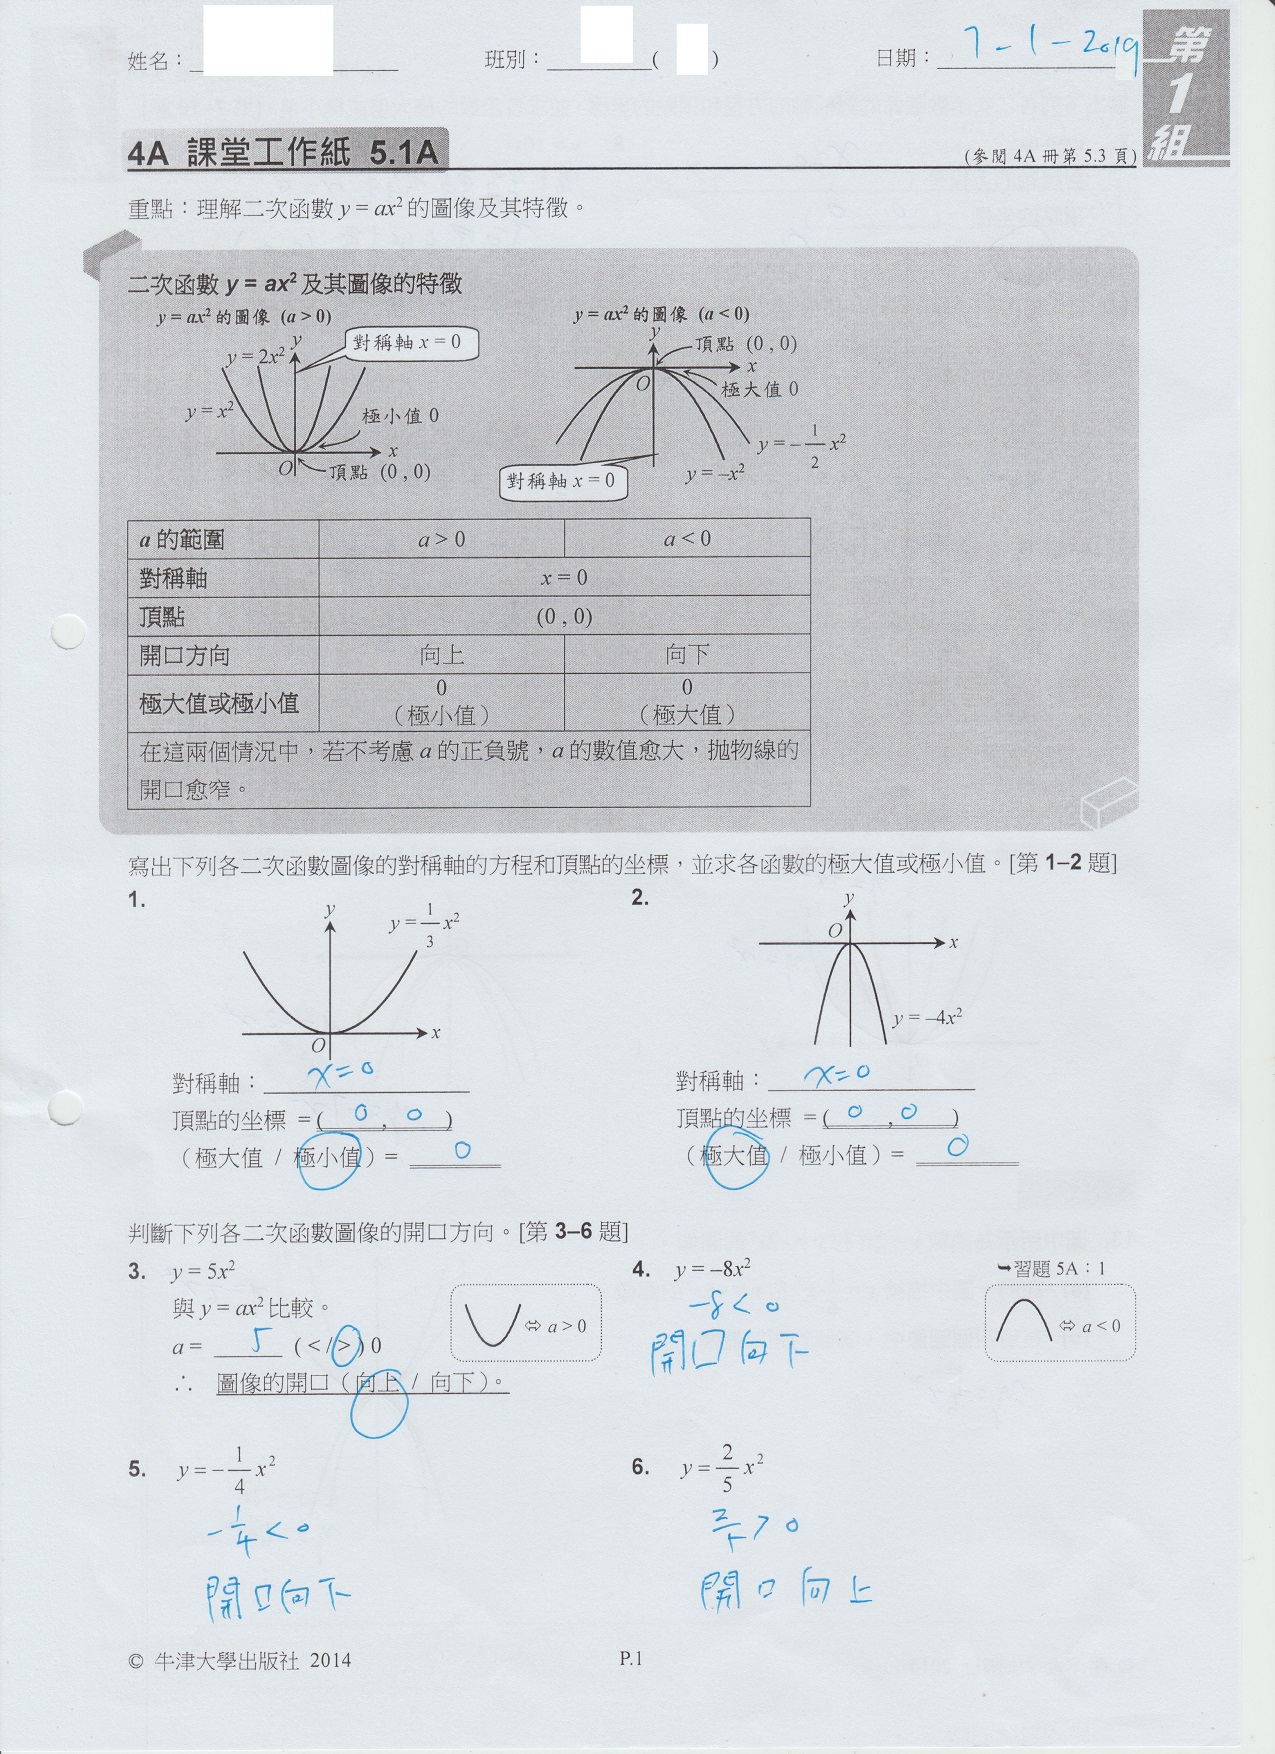 姓名：
班別： ( )
日期： 7-1-2019
第
1
組
4A 課堂工作紙 5.1A
(參閱 4A 冊第 5.3 頁)
重點：理解二次函數 y = ax² 的圖像及其特徵。
二次函數 y = ax² 及其圖像的特徵
y = ax² 的圖像 (a > 0)
y
對稱軸 x = 0
y = 2x²
y = x²
極小值 0
x
O
頂點 (0 , 0)
y = ax² 的圖像 (a < 0)
y
頂點 (0 , 0)
x
O
極大值 0
y = –1/2 x²
對稱軸 x = 0
y = –x²
a 的範圍 a > 0 a < 0
對稱軸 x = 0
頂點 (0 , 0)
開口方向 向上 向下
極大值或極小值 0 0
（極小值） （極大值）
在這兩個情況中，若不考慮 a 的正負號，a 的數值愈大，拋物線的
開口愈窄。
寫出下列各二次函數圖像的對稱軸的方程和頂點的坐標，並求各函數的極大值或極小值。[第 1–2 題]
1.
y
y = 1/3 x²
x
O
對稱軸： x=0
頂點的坐標 =( 0 , 0 )
（極大值 / 極小值）= 0
2.
y
O
x
y = –4x²
對稱軸： x=0
頂點的坐標 =( 0 , 0 )
（極大值 / 極小值）= 0
判斷下列各二次函數圖像的開口方向。[第 3–6 題]
3. y = 5x²
與 y = ax² 比較。
a = 5 ( < / > ) 0
∴ 圖像的開口（向上 / 向下）。
⇔ a > 0
4. y = –8x²
-8 < 0
開口向下
➥習題 5A：1
⇔ a < 0
5. y = –1/4 x²
-1/4 < 0
開口向下
6. y = 2/5 x²
2/5 > 0
開口向上
© 牛津大學出版社 2014
P.1